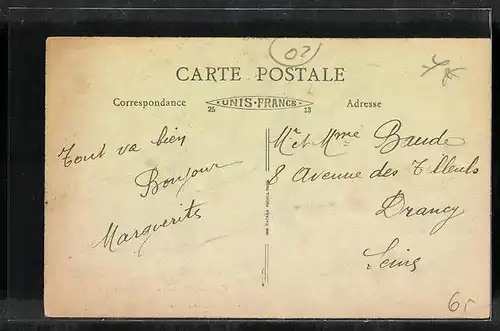 02
CARTE POSTALE
Correspondance
UNIS-FRANCE
25 13
Adresse
Tout va bien
Bonjour
Marguerite
Mr et Mme Baude
8 Avenue des Tilleuls
Drancy
Seine
6